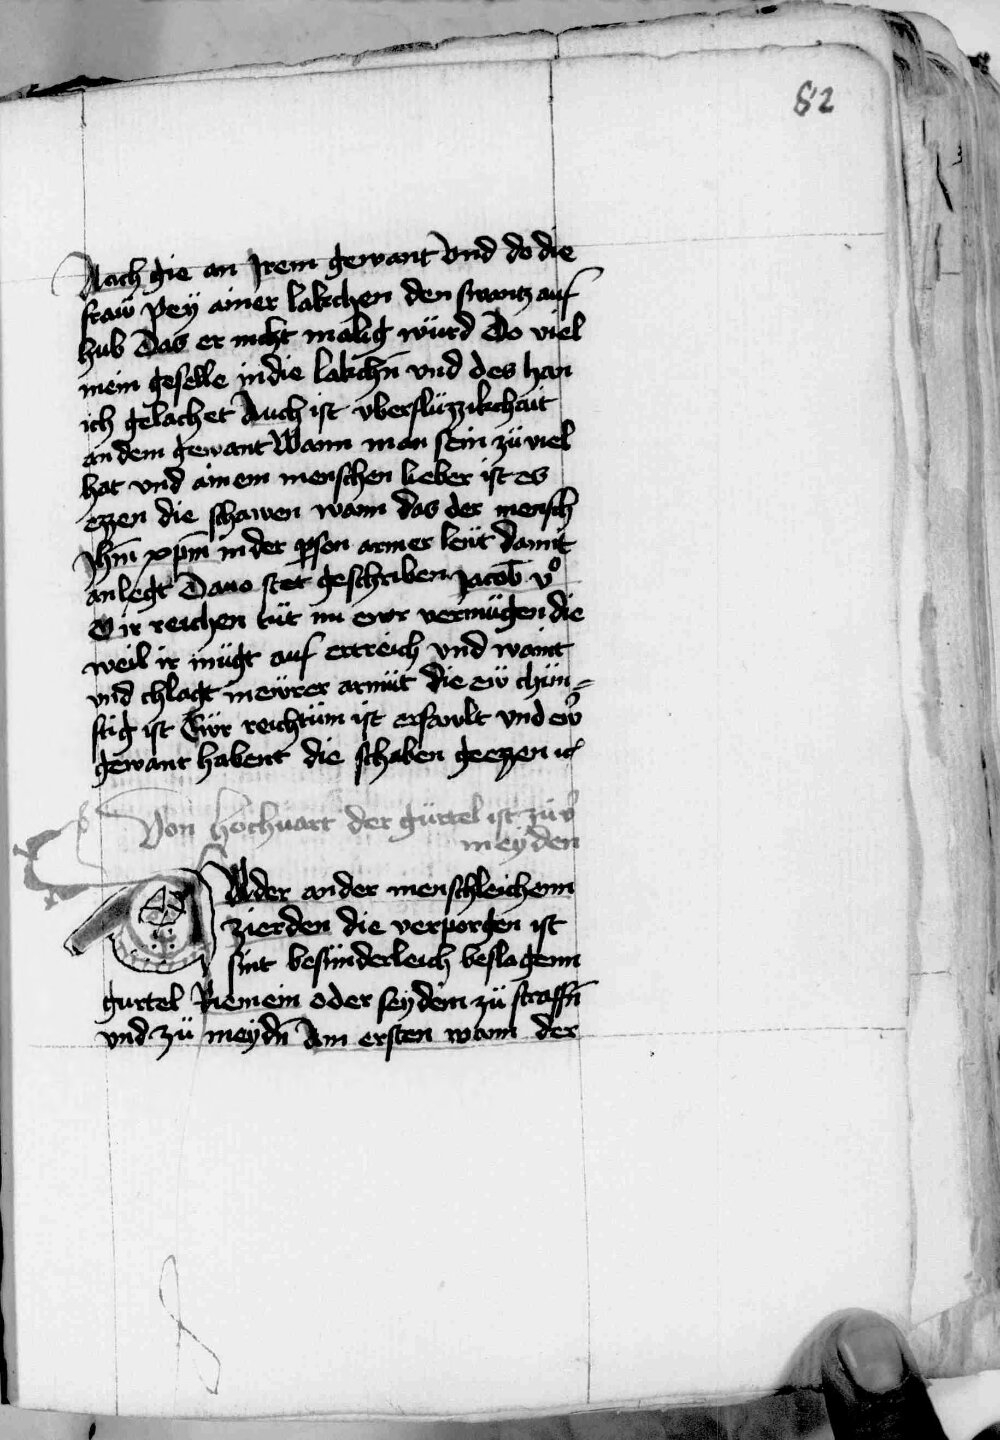 82
Nach gie an Jrem gewant Vnd do die
fraẅ peÿ ainer lakchen den swantz auf
hub Das er nicht malig würd Do viel
mein geselle in die lakchn̄ vnd des han
ich gelachet Auch ist vberflüzzikchait
an dem gewant Wann man sein zü viel
hat vnd ainem menschen lieber ist es
ezzen die schawen wann das der mensch
Jhm̄ xpm̄ in der ꝑson armer leüt damit
an legt Dauo stet geschriben Jacob̄ vͦ
O ir reichen tüt nu ewr vermügen die
weil ir mügt auf ertreich vnd waint
vnd chlagt mewrer armüt die eẅ chün=
ftig ist Eẅr reichtüm ist erfawlt vnd ew̓
gewant habent die schaben geezzen ⁊c̓
Von hochuart der gürtel ist zü v̓
meyden
Under ander menschleichenn
zierden die verporgen ist
sint besünderleich beslagenn
gurtel Riemein oder seydein zü straffn̄
vnd zü meydn̄ Am ersten wann der